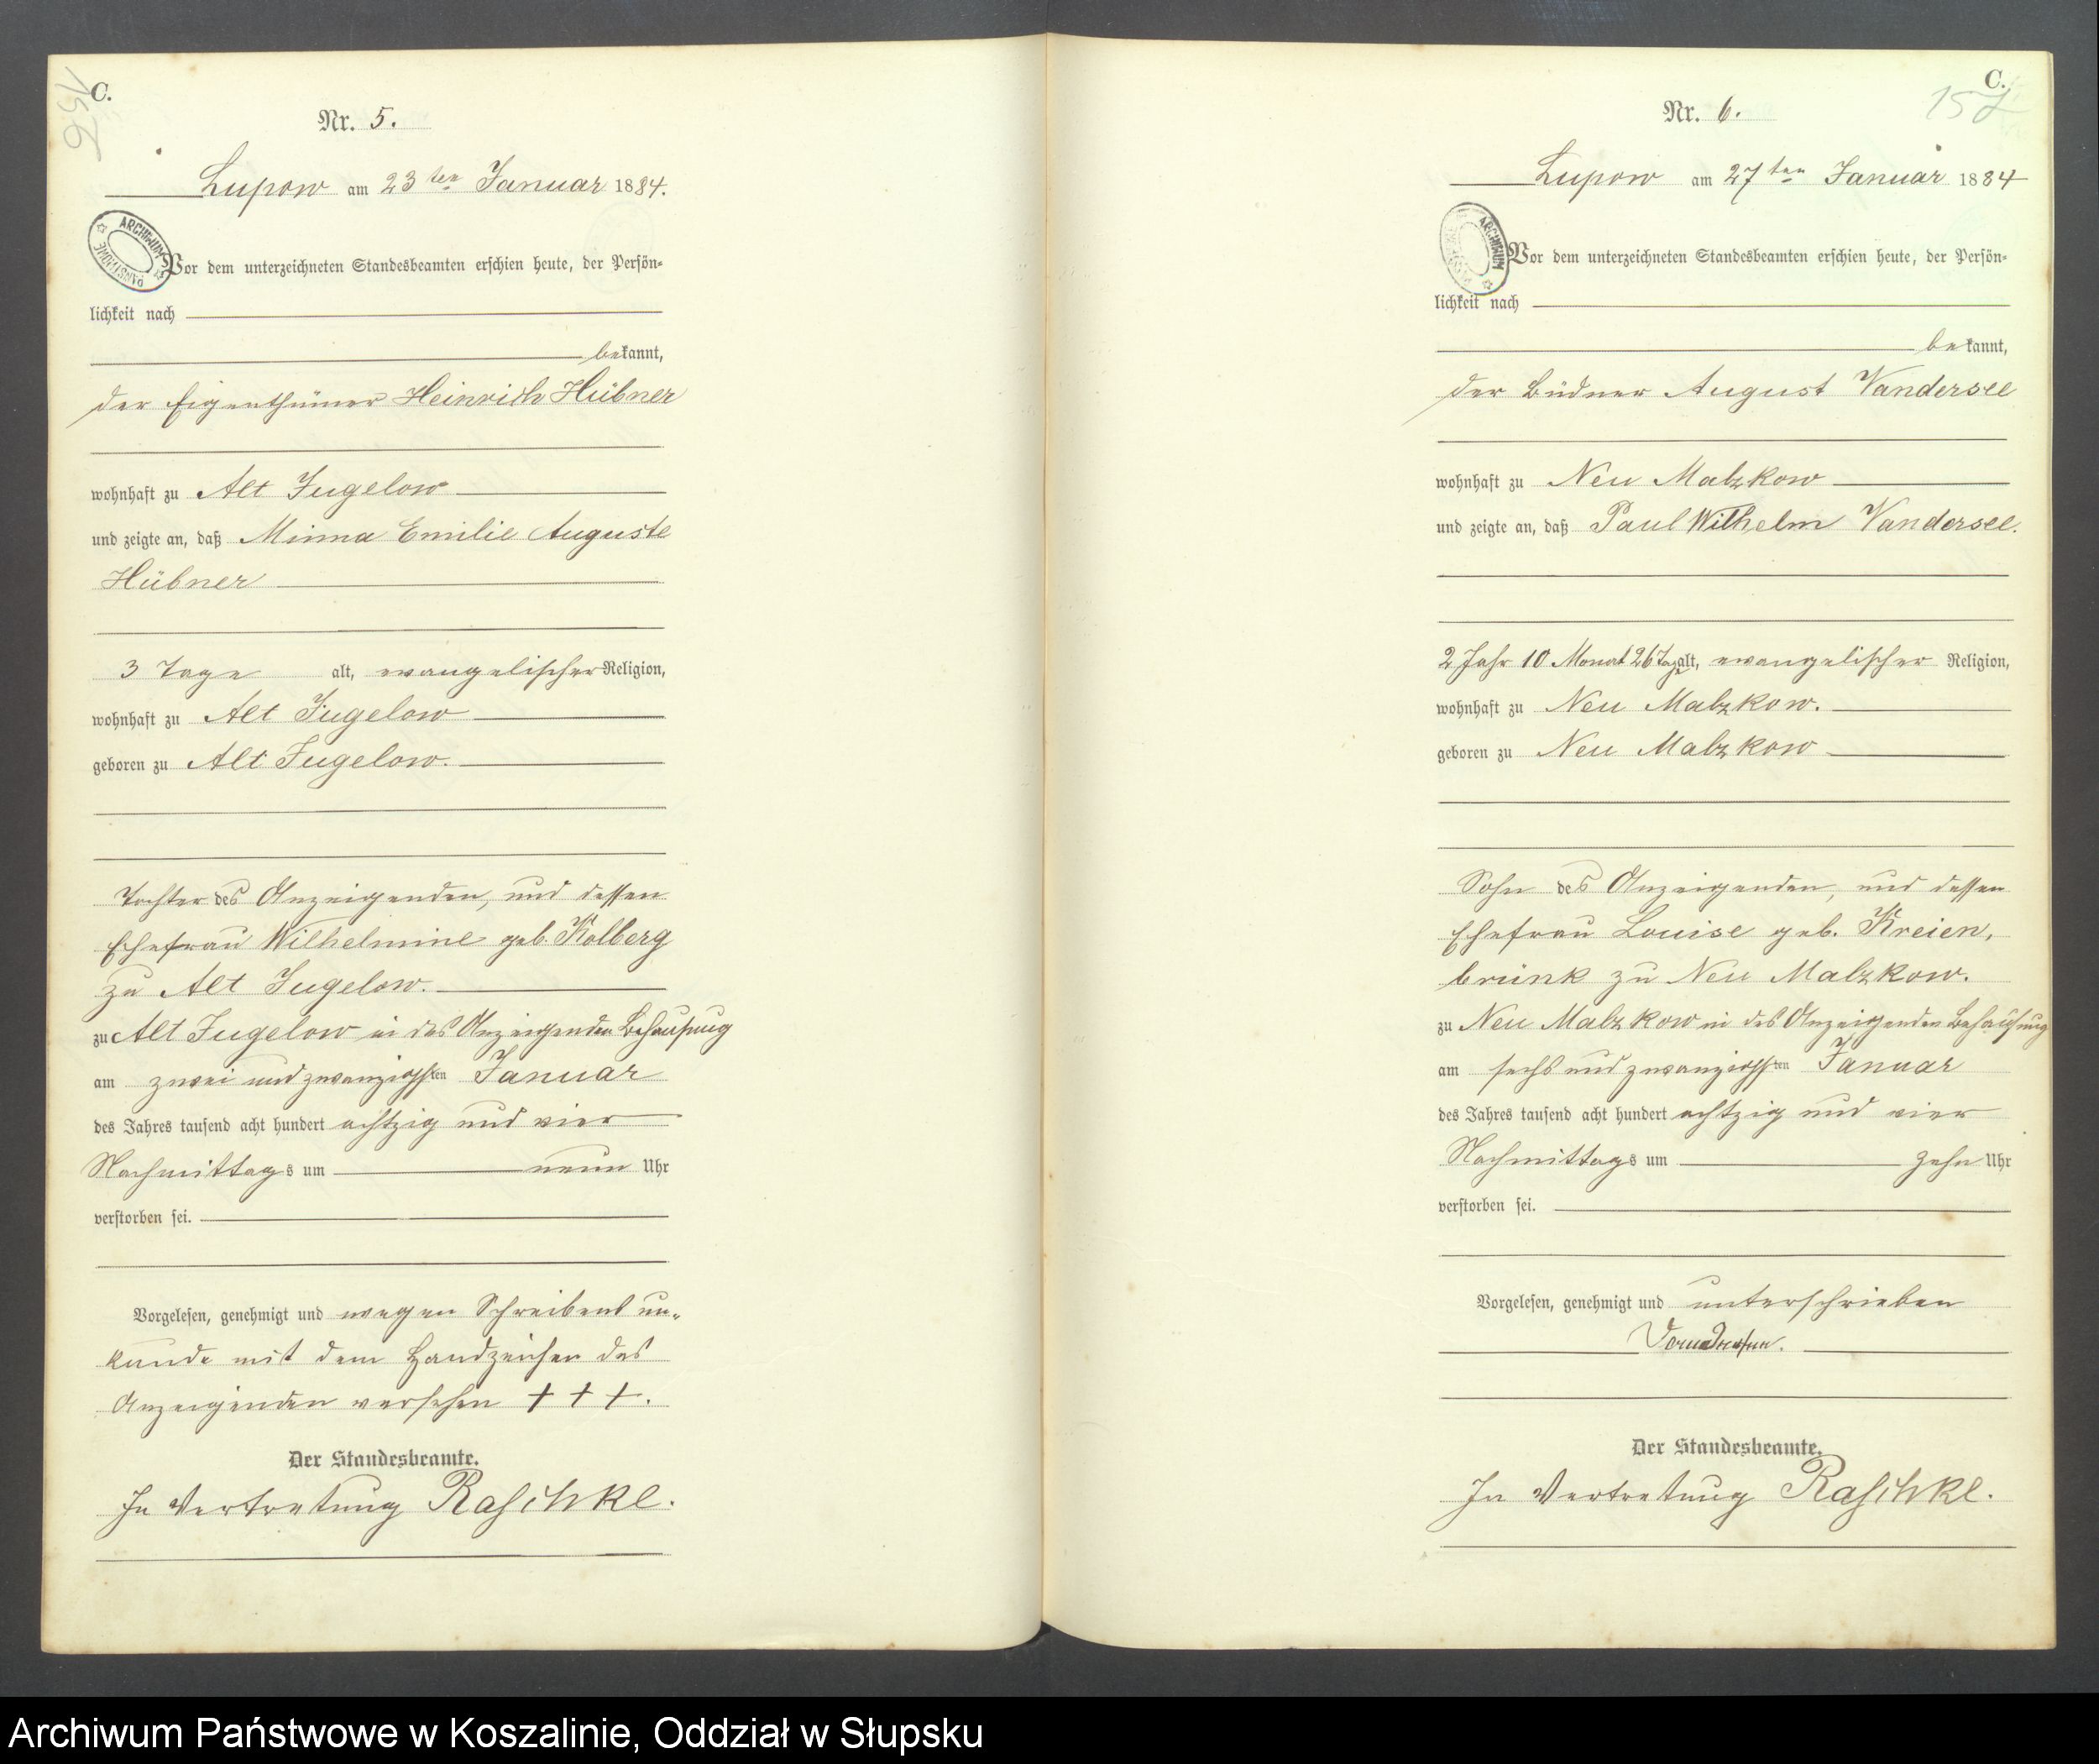 156
C.
Nr. 5.
Lupow am 23ten Januar 1884.
ARCHIWUM PAŃSTWOWE
Vor dem unterzeichneten Standesbeamten erschien heute, der Persön-
lichkeit nach
bekannt,
der Eigenthümer Heinrich Hübner
wohnhaft zu Alt Jugelow
und zeigte an, daß Minna Emilie Auguste
Hübner
3 Tage alt, evangelischer Religion,
wohnhaft zu Alt Jugelow
geboren zu Alt Jugelow.
Tochter des Anzeigenden, und dessen
Ehefrau Wilhelmine geb. Kolberg
zu Alt Jugelow.
zu Alt Jugelow in des Anzeigenden Behausung
am zwei und zwanzigsten Januar
des Jahres tausend acht hundert achtzig und vier
Nachmittags um neun Uhr
verstorben sei.
Vorgelesen, genehmigt und wegen Schreibens un-
kunde mit dem Handzeichen des
Anzeigenden versehen + + +.
Der Standesbeamte.
In Vertretung Raschke.
C.
157
Nr. 6.
Lupow am 27ten Januar 1884
ARCHIWUM PAŃSTWOWE
Vor dem unterzeichneten Standesbeamten erschien heute, der Persön-
lichkeit nach
bekannt,
der Büdner August Vandersee
wohnhaft zu Neu Malzkow
und zeigte an, daß Paul Wilhelm Vandersee.
2 Jahr 10 Monat 26 Tage alt, evangelischer Religion,
wohnhaft zu Neu Malzkow.
geboren zu Neu Malzkow
Sohn des Anzeigenden, und dessen
Ehefrau Louise geb. Kreien,
brink zu Neu Malzkow.
zu Neu Malzkow in des Anzeigenden Behausung
am sechs und zwanzigsten Januar
des Jahres tausend acht hundert achtzig und vier
Nachmittags um zehn Uhr
verstorben sei.
Vorgelesen, genehmigt und unterschrieben
Der Standesbeamte.
In Vertretung Raschke.
Archiwum Państwowe w Koszalinie, Oddział w Słupsku